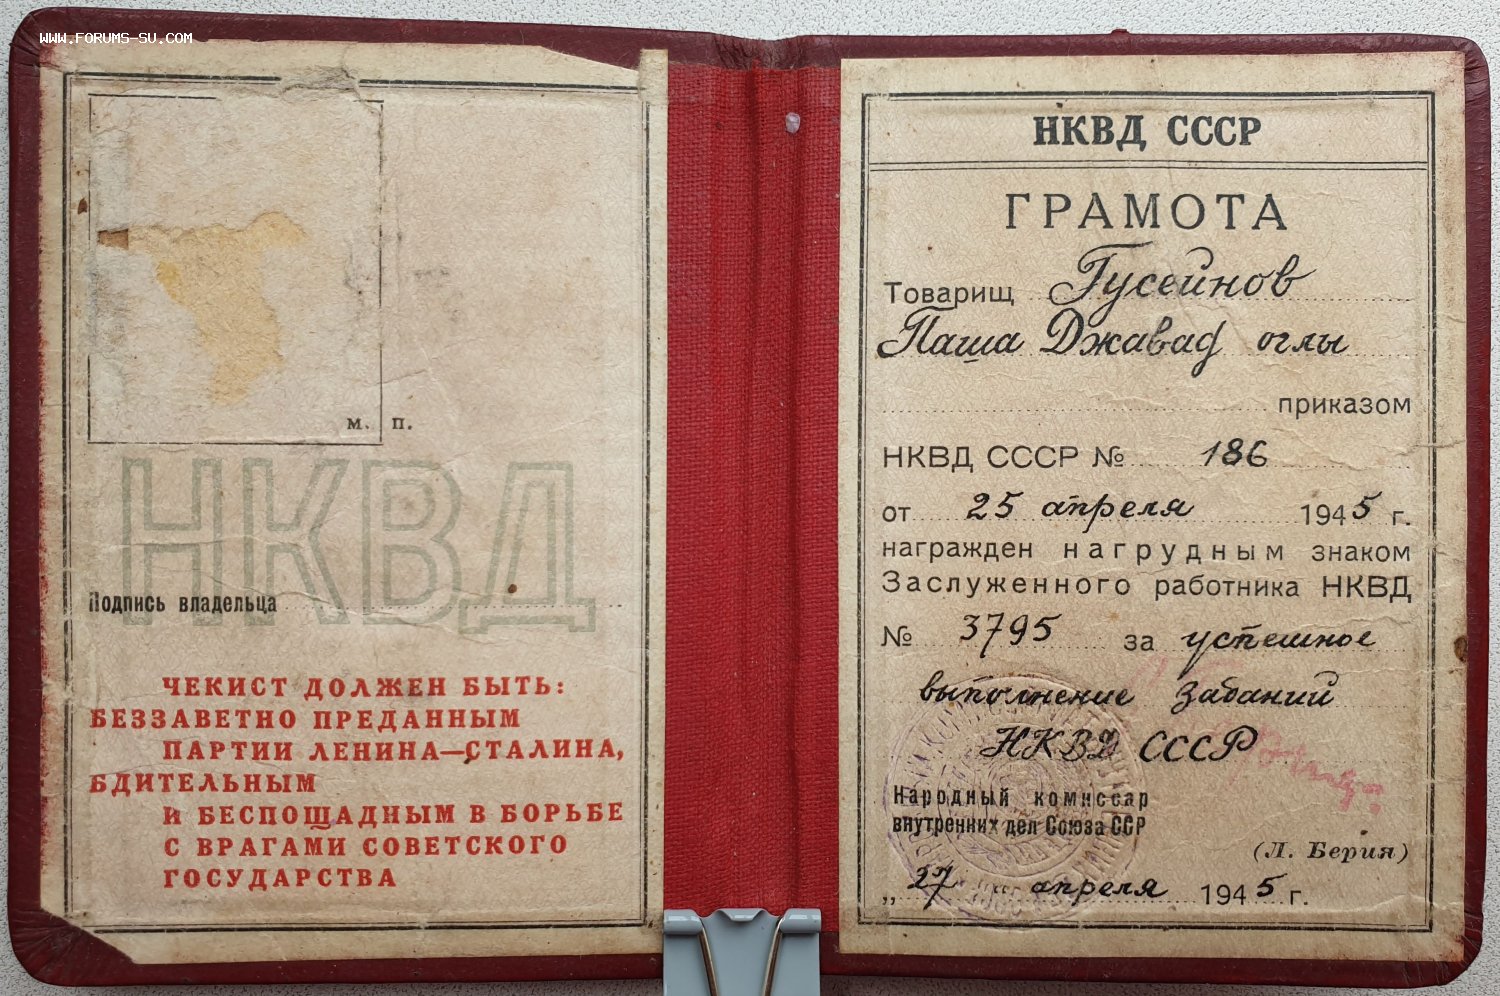 WWW.FORUMS-SU.COM
М. П.
НКВД
Подпись владельца
ЧЕКИСТ ДОЛЖЕН БЫТЬ:
БЕЗЗАВЕТНО ПРЕДАННЫМ
ПАРТИИ ЛЕНИНА—СТАЛИНА,
БДИТЕЛЬНЫМ
И БЕСПОЩАДНЫМ В БОРЬБЕ
С ВРАГАМИ СОВЕТСКОГО
ГОСУДАРСТВА
НКВД СССР
ГРАМОТА
Товарищ Гусейнов
Паша Джавад оглы
приказом
НКВД СССР № 186
от 25 апреля 1945 г.
награжден нагрудным знаком
Заслуженного работника НКВД
№ 3795 за успешное
выполнение заданий
НКВД СССР
Народный комиссар
внутренних дел Союза ССР
(Л. Берия)
„27" апреля 1945 г.